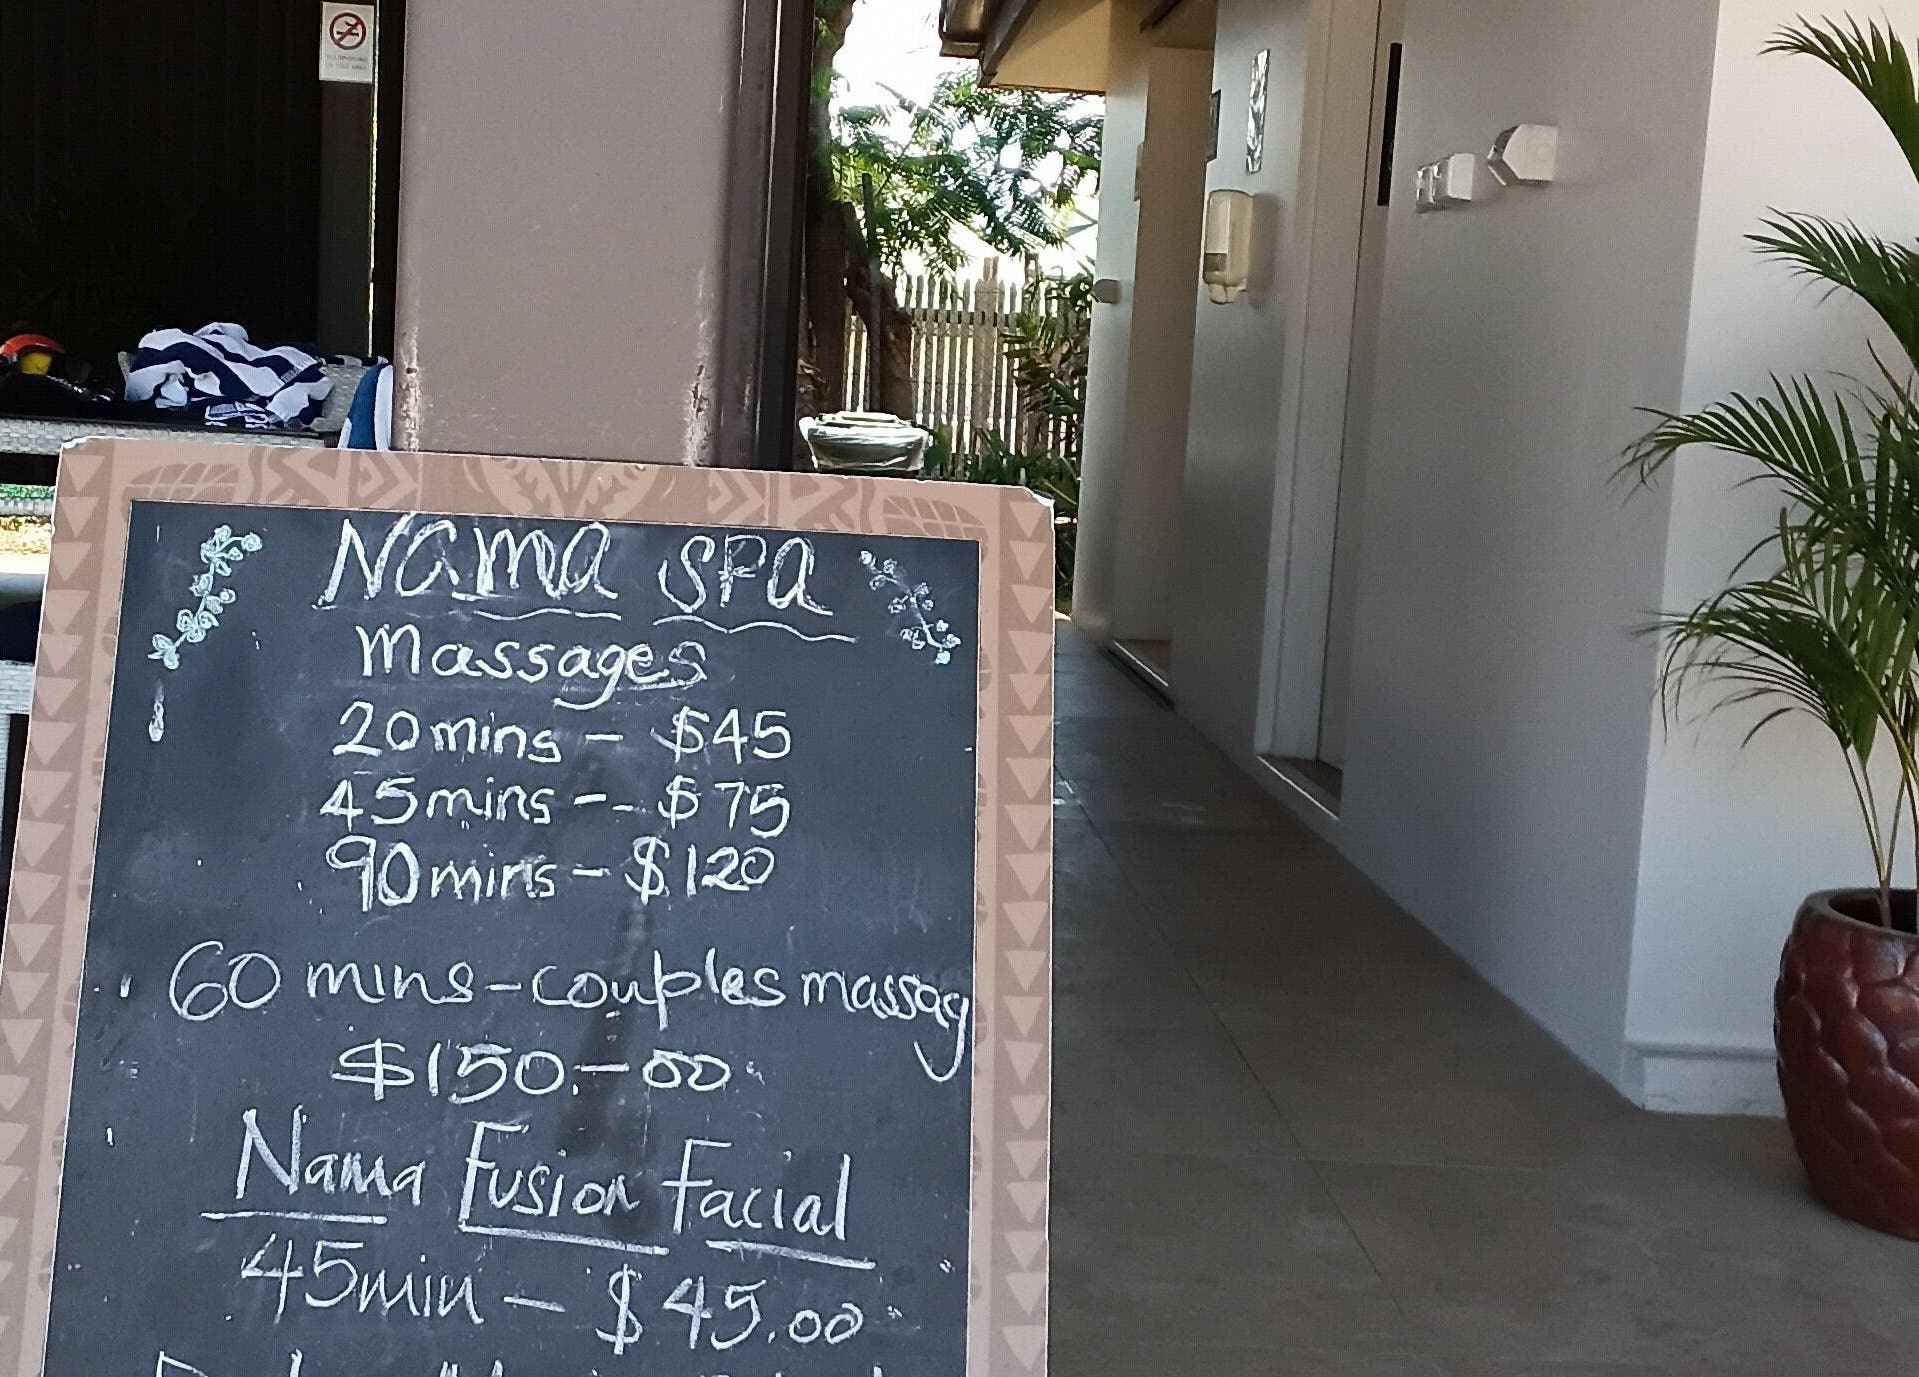 Nama SPA
Massages
20mins - $45
45mins -- $75
90mins - $120
60 mins - couples massag
$150.-00
Nama Fusion Facial
45min - $45.00